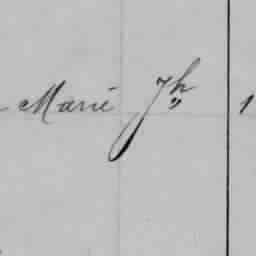 Marie Jh 1